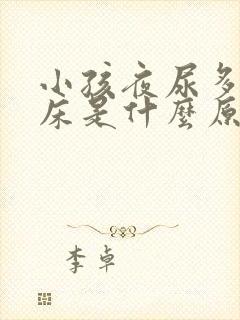 小孩夜尿多
床是什麼原
李卓